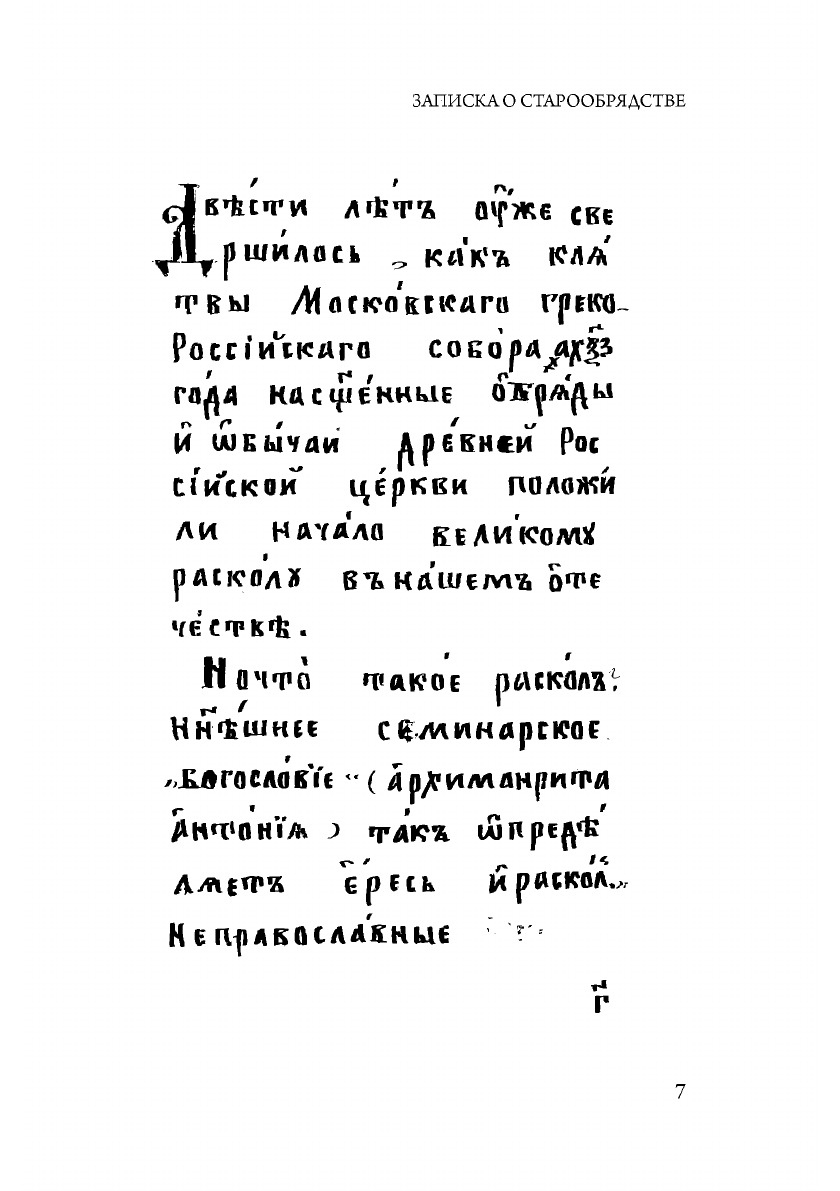 ЗАПИСКА О СТАРООБРЯДСТВЕ
Двѣ́сти лѣ́тъ оу҆́же све
рши́лось, ка́къ клѧ́
твы Моско́вскаго греко-
Россі́йскаго собо́ра ҂ахѯз҃
го́да на сщ҃е́нные ѻ҆брѧ́ды
и҆ ѡ҆бы́чаи дре́вней Рос
сі́йской це́ркви положи́
ли нача́ло вели́кому
раско́лꙋ въ на́шемъ ѻ҆те
че́ствѣ.
Но что̀ тако́е раско́лъ?
Нн҃ѣ́шнее семинарское
„Богосло́вїе“ (а҆рхимандрита
А҆нто́нїѧ) та́къ ѡ҆предѣ́
лѧетъ е҆́ресь и҆ раско́л.„
Неправосла́вные
г҃
7